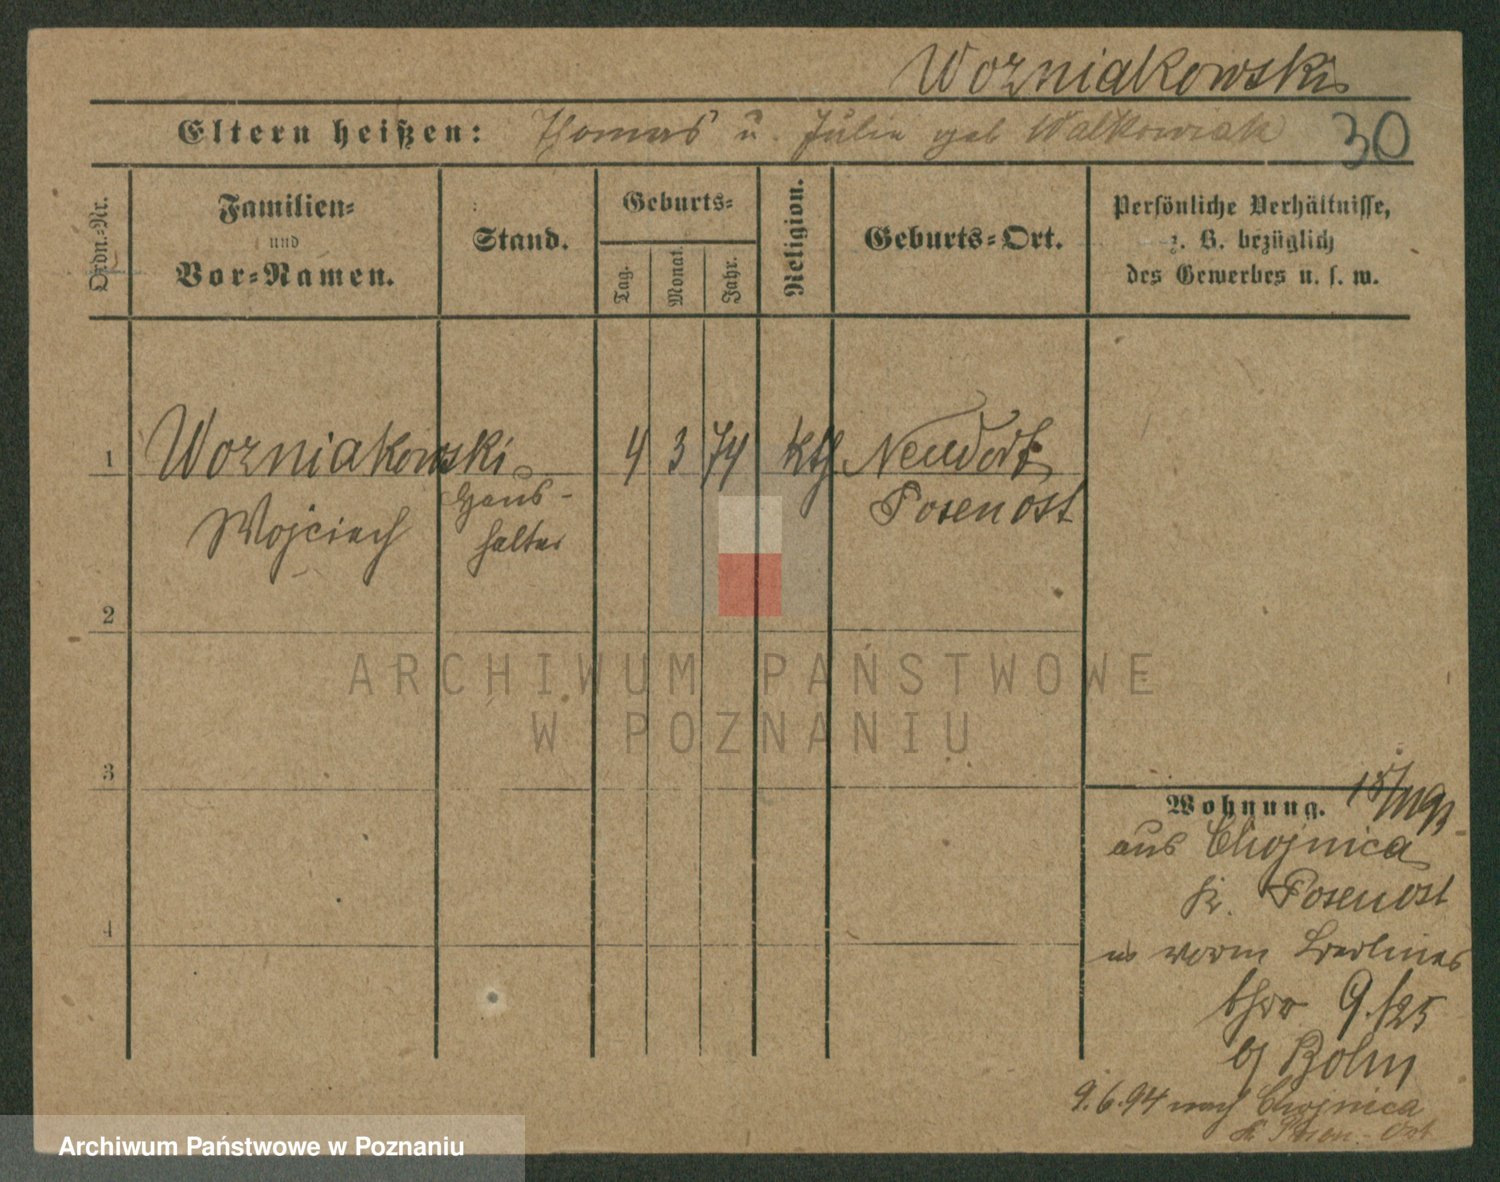 Wozniakowski
Eltern heißen: Thomas u. Julie geb Walkowiak
30
Ordn.-Nr.
Familien-
und
Vor-Namen.
Stand.
Geburts-
Tag.
Monat.
Jahr.
Religion.
Geburts-Ort.
Persönliche Verhältnisse,
z. B. bezüglich
des Gewerbes u. s. w.
1 Wozniakowski 4 3 74 kth Neudorf
Wojciech Haus- Posen Ost
halter
2
ARCHIWUM PAŃSTWOWE
W POZNANIU
3
Wohnung.
aus Chojnica
Kr. Posen Ost
Berliner
thor 9./25
bj Bohn
4
9.6.94 nach Chojnica
Kr Posen-Ost
Archiwum Państwowe w Poznaniu